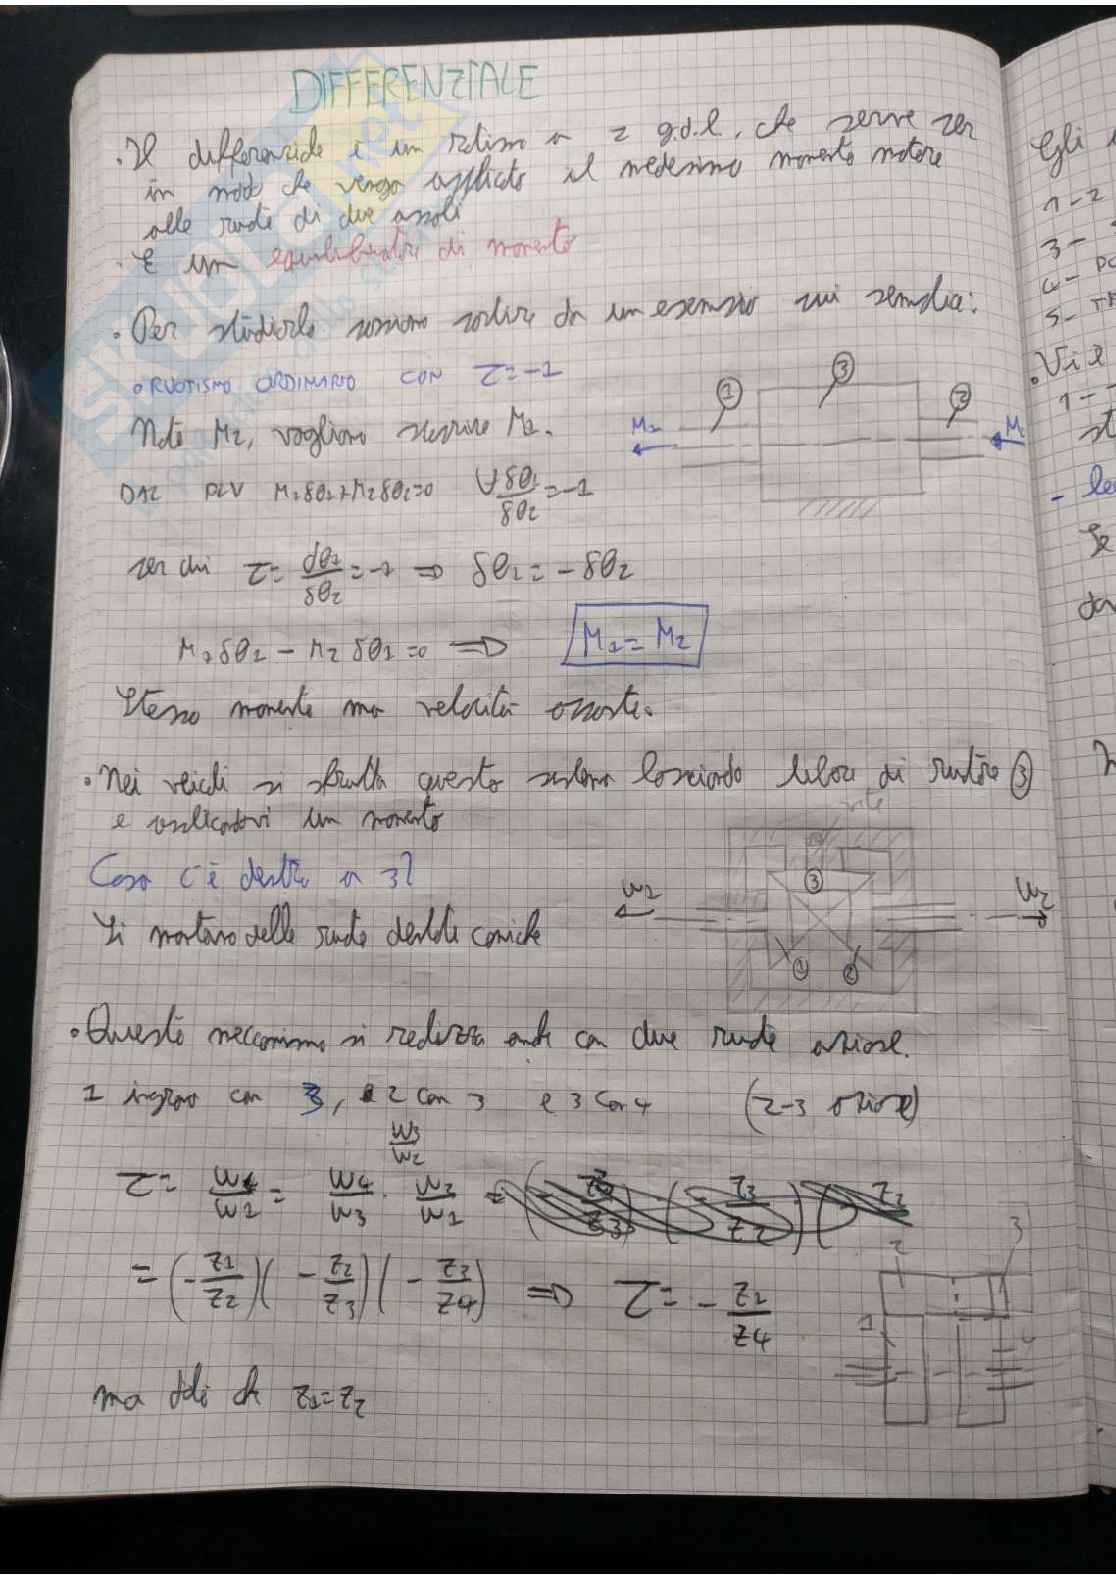 DIFFERENZIALE
. Il differenziale è un rotismo a 2 g.d.l. che serve per
in modo che venga applicato il medesimo momento motore
alle ruote di due assoli
. È un equilibratore di momento
. Per studiarlo possiamo partire da un esempio più semplice:
o RUOTISMO ORDINARIO CON τ=-1
Noto M2, vogliamo scrivere M1.
DAL PLV M1δθ1+M2δθ2=0 ∀ δθ1/δθ2=-1
per cui τ= δθ1/δθ2=-1 ⇒ δθ1=-δθ2
M1δθ1-M2δθ1=0 ⇒ M1=M2
Stesso momento ma velocità opposte.
1
3
2
. Nei veicoli si sfrutta questo sistema lasciando libero di ruotare 3
e applicandovi un momento
Cosa c'è dentro a 3?
Si montano delle ruote dentate coniche
3
1
2
. Questo meccanismo si realizza anche con due ruote oziose.
1 ingrana con 3, 2 con 3 e 3 con 4 (2-3 oziose)
ω3/ω2
τ= ω4/ω1= ω4/ω3 · ω2/ω1 =
=(-z1/z2)(-z2/z3)(-z3/z4) ⇒ τ=-z1/z4
2
3
1
ma z1=z2
Gli
1-2
3-
4-
5-
. Vi è
1-
Se